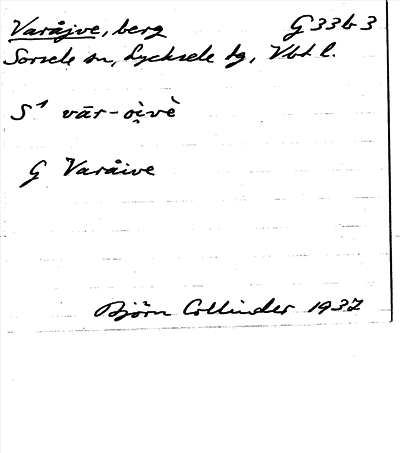 Varåjve, berg G 33b 3
Sorsele sn, Lycksele tg, Vbt l.
S¹ vār-oi̯vè
G Varåive
Björn Collinder 1937